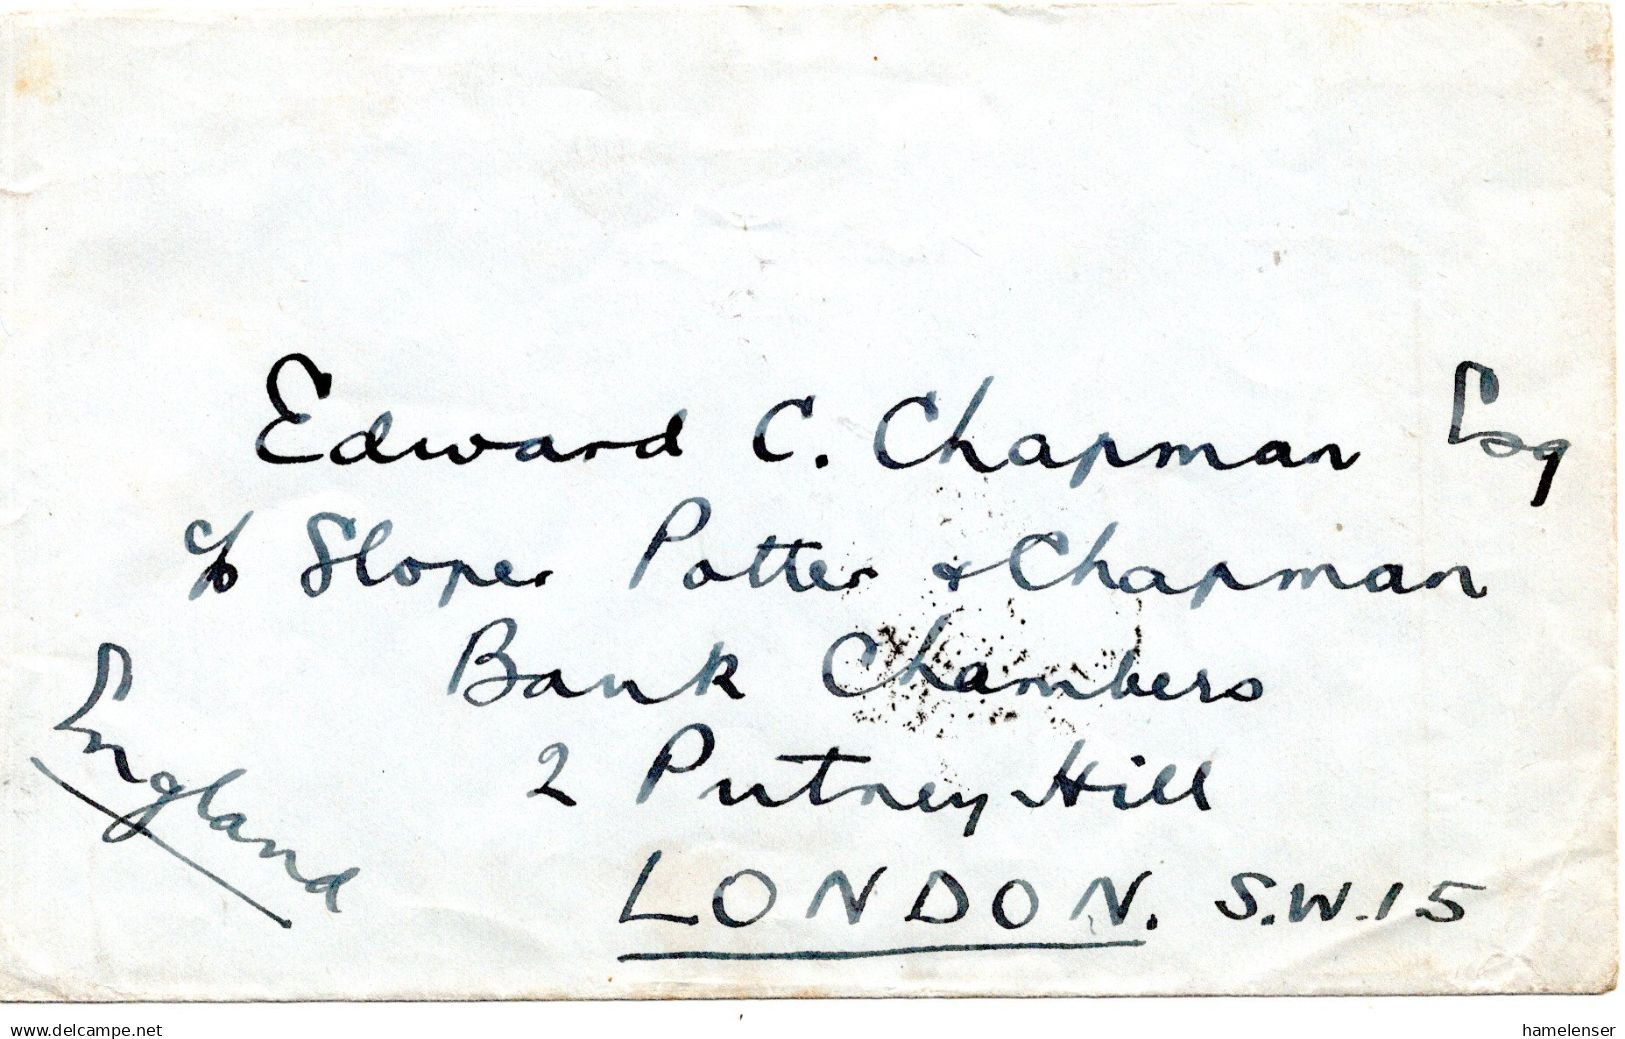 Edward C. Chapman Esq
c/o Sloper Potter & Chapman
Bank Chambers
2 Putney Hill
LONDON. S.W.15
England
www.delcampe.net
hamelenser